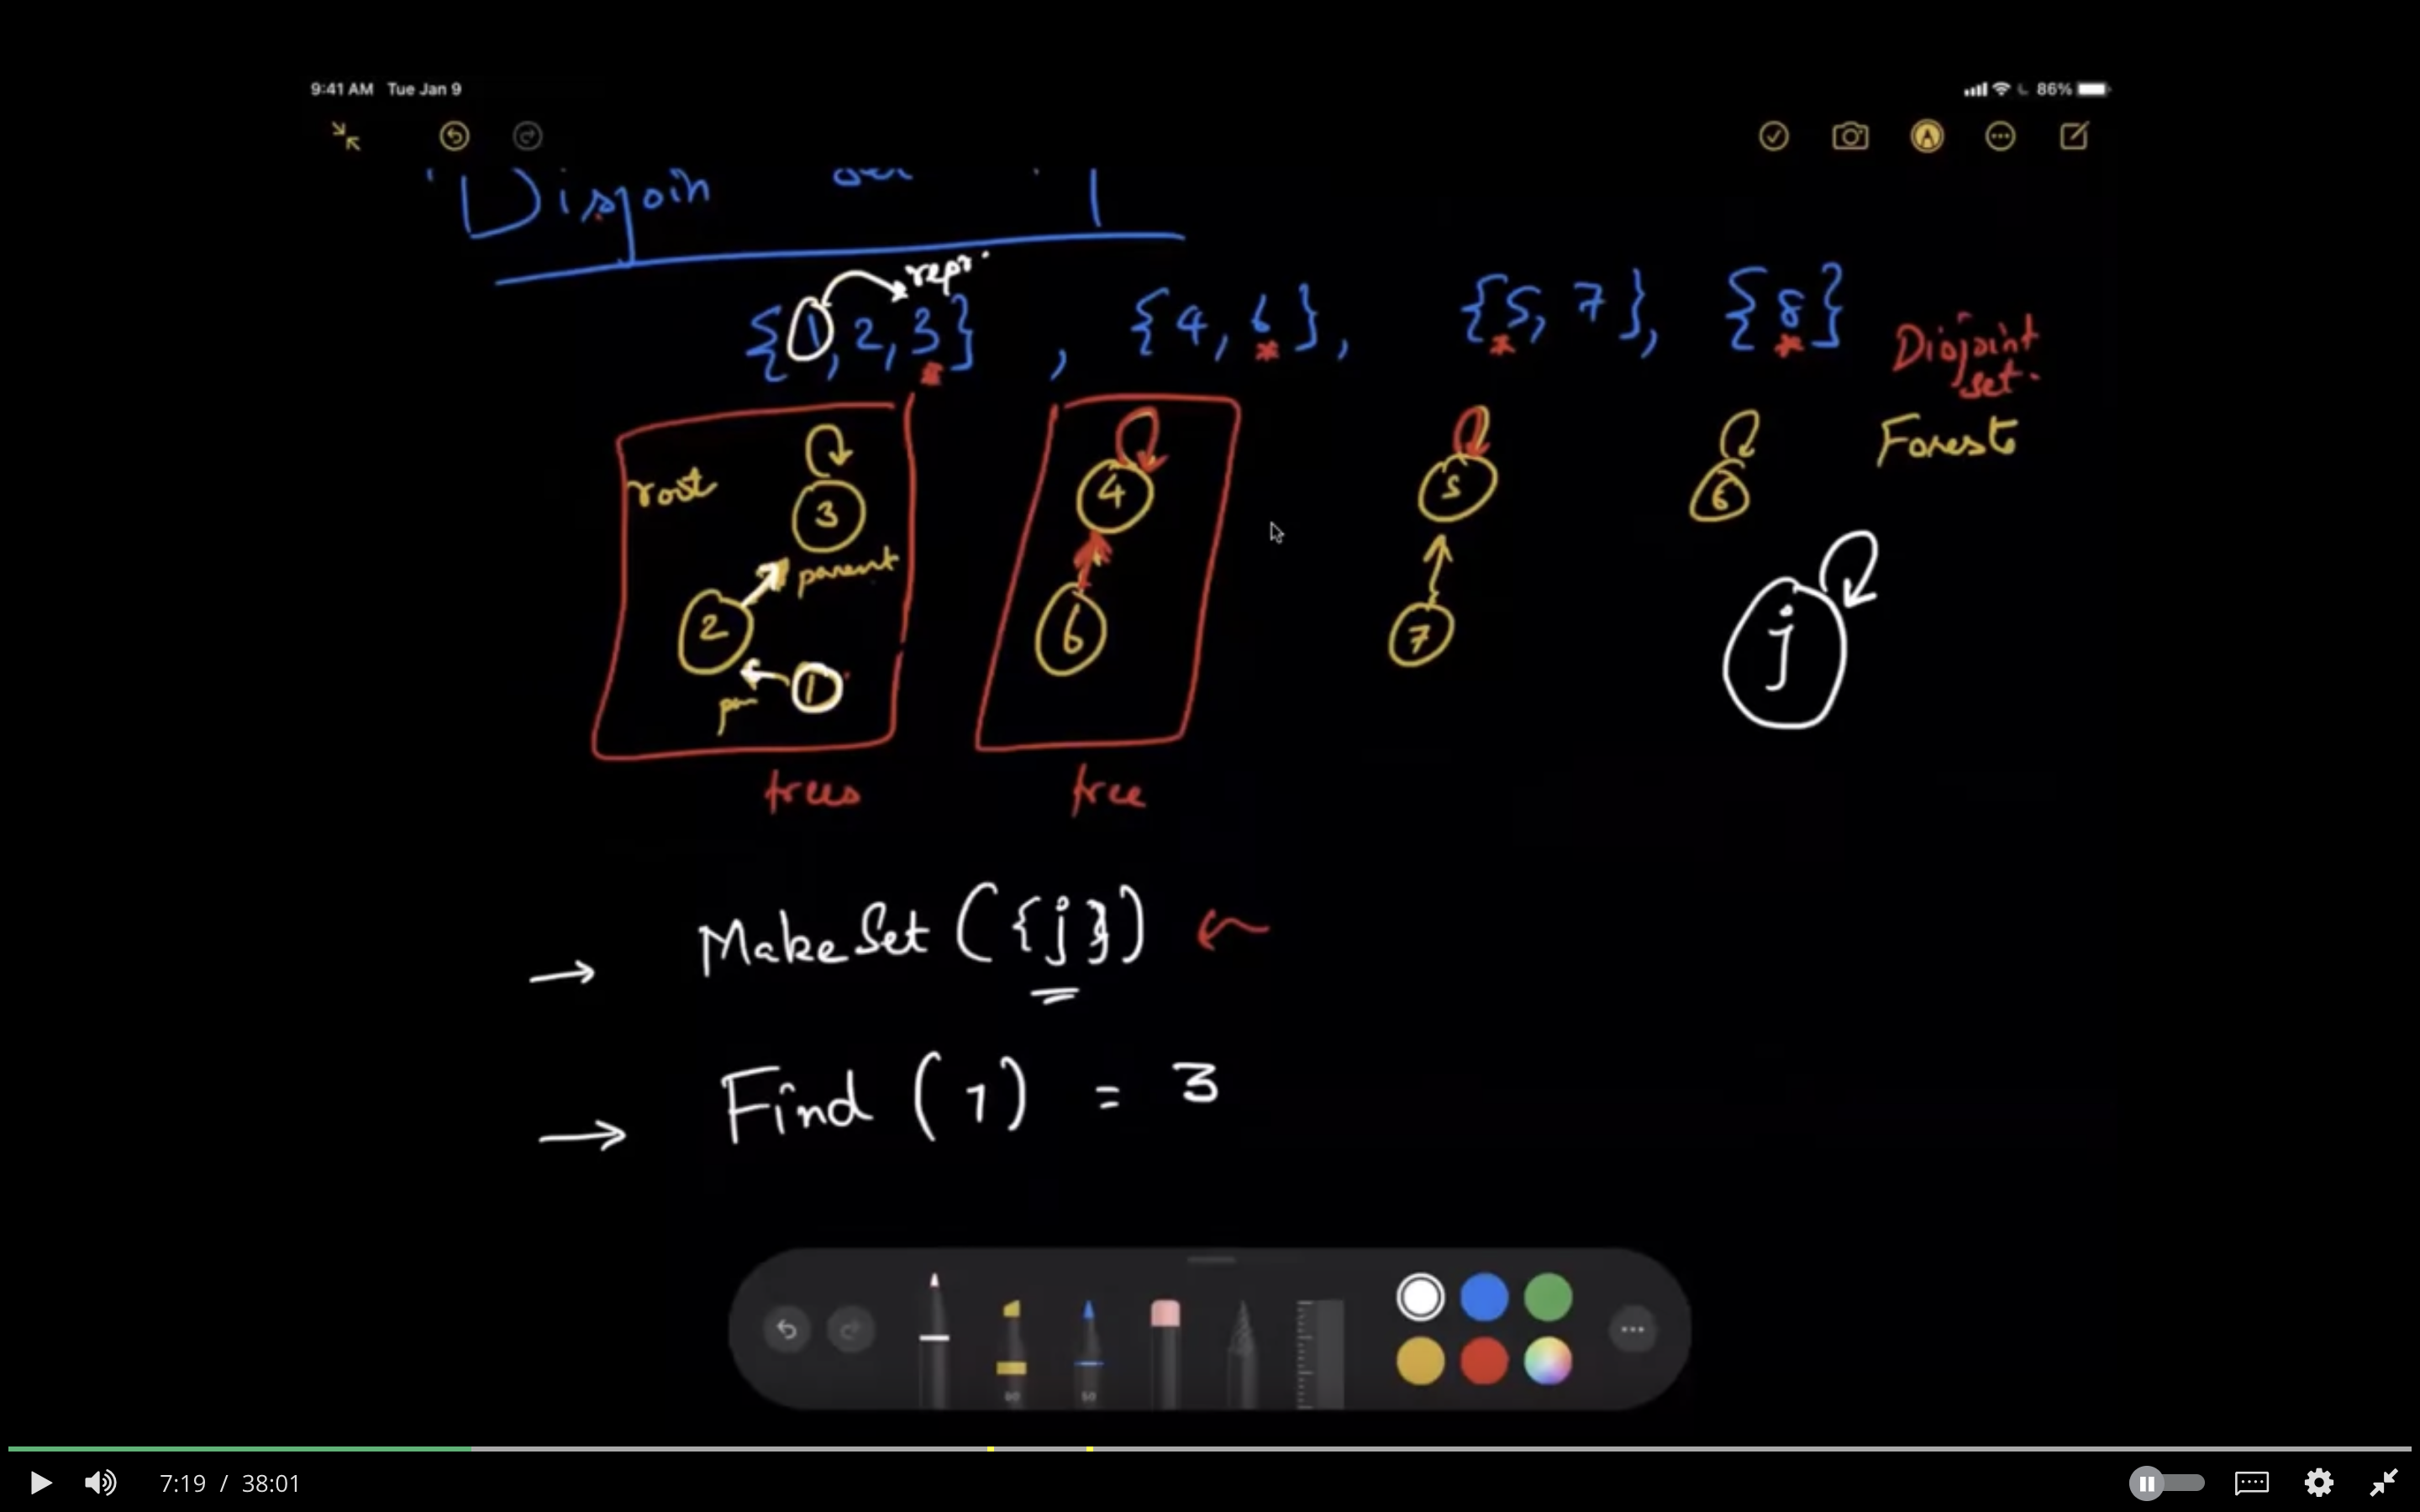 9:41 AM Tue Jan 9 86%
Disjoin
repr.
{1, 2, 3} , {4, 6}, {5, 7}, {8}
Disjoint
set.
Forest
root 3 4 5 6
parent
2 6 7 j
par 1
trees tree
→ MakeSet ({j}) ←
→ Find (1) = 3
80 50
7:19 / 38:01